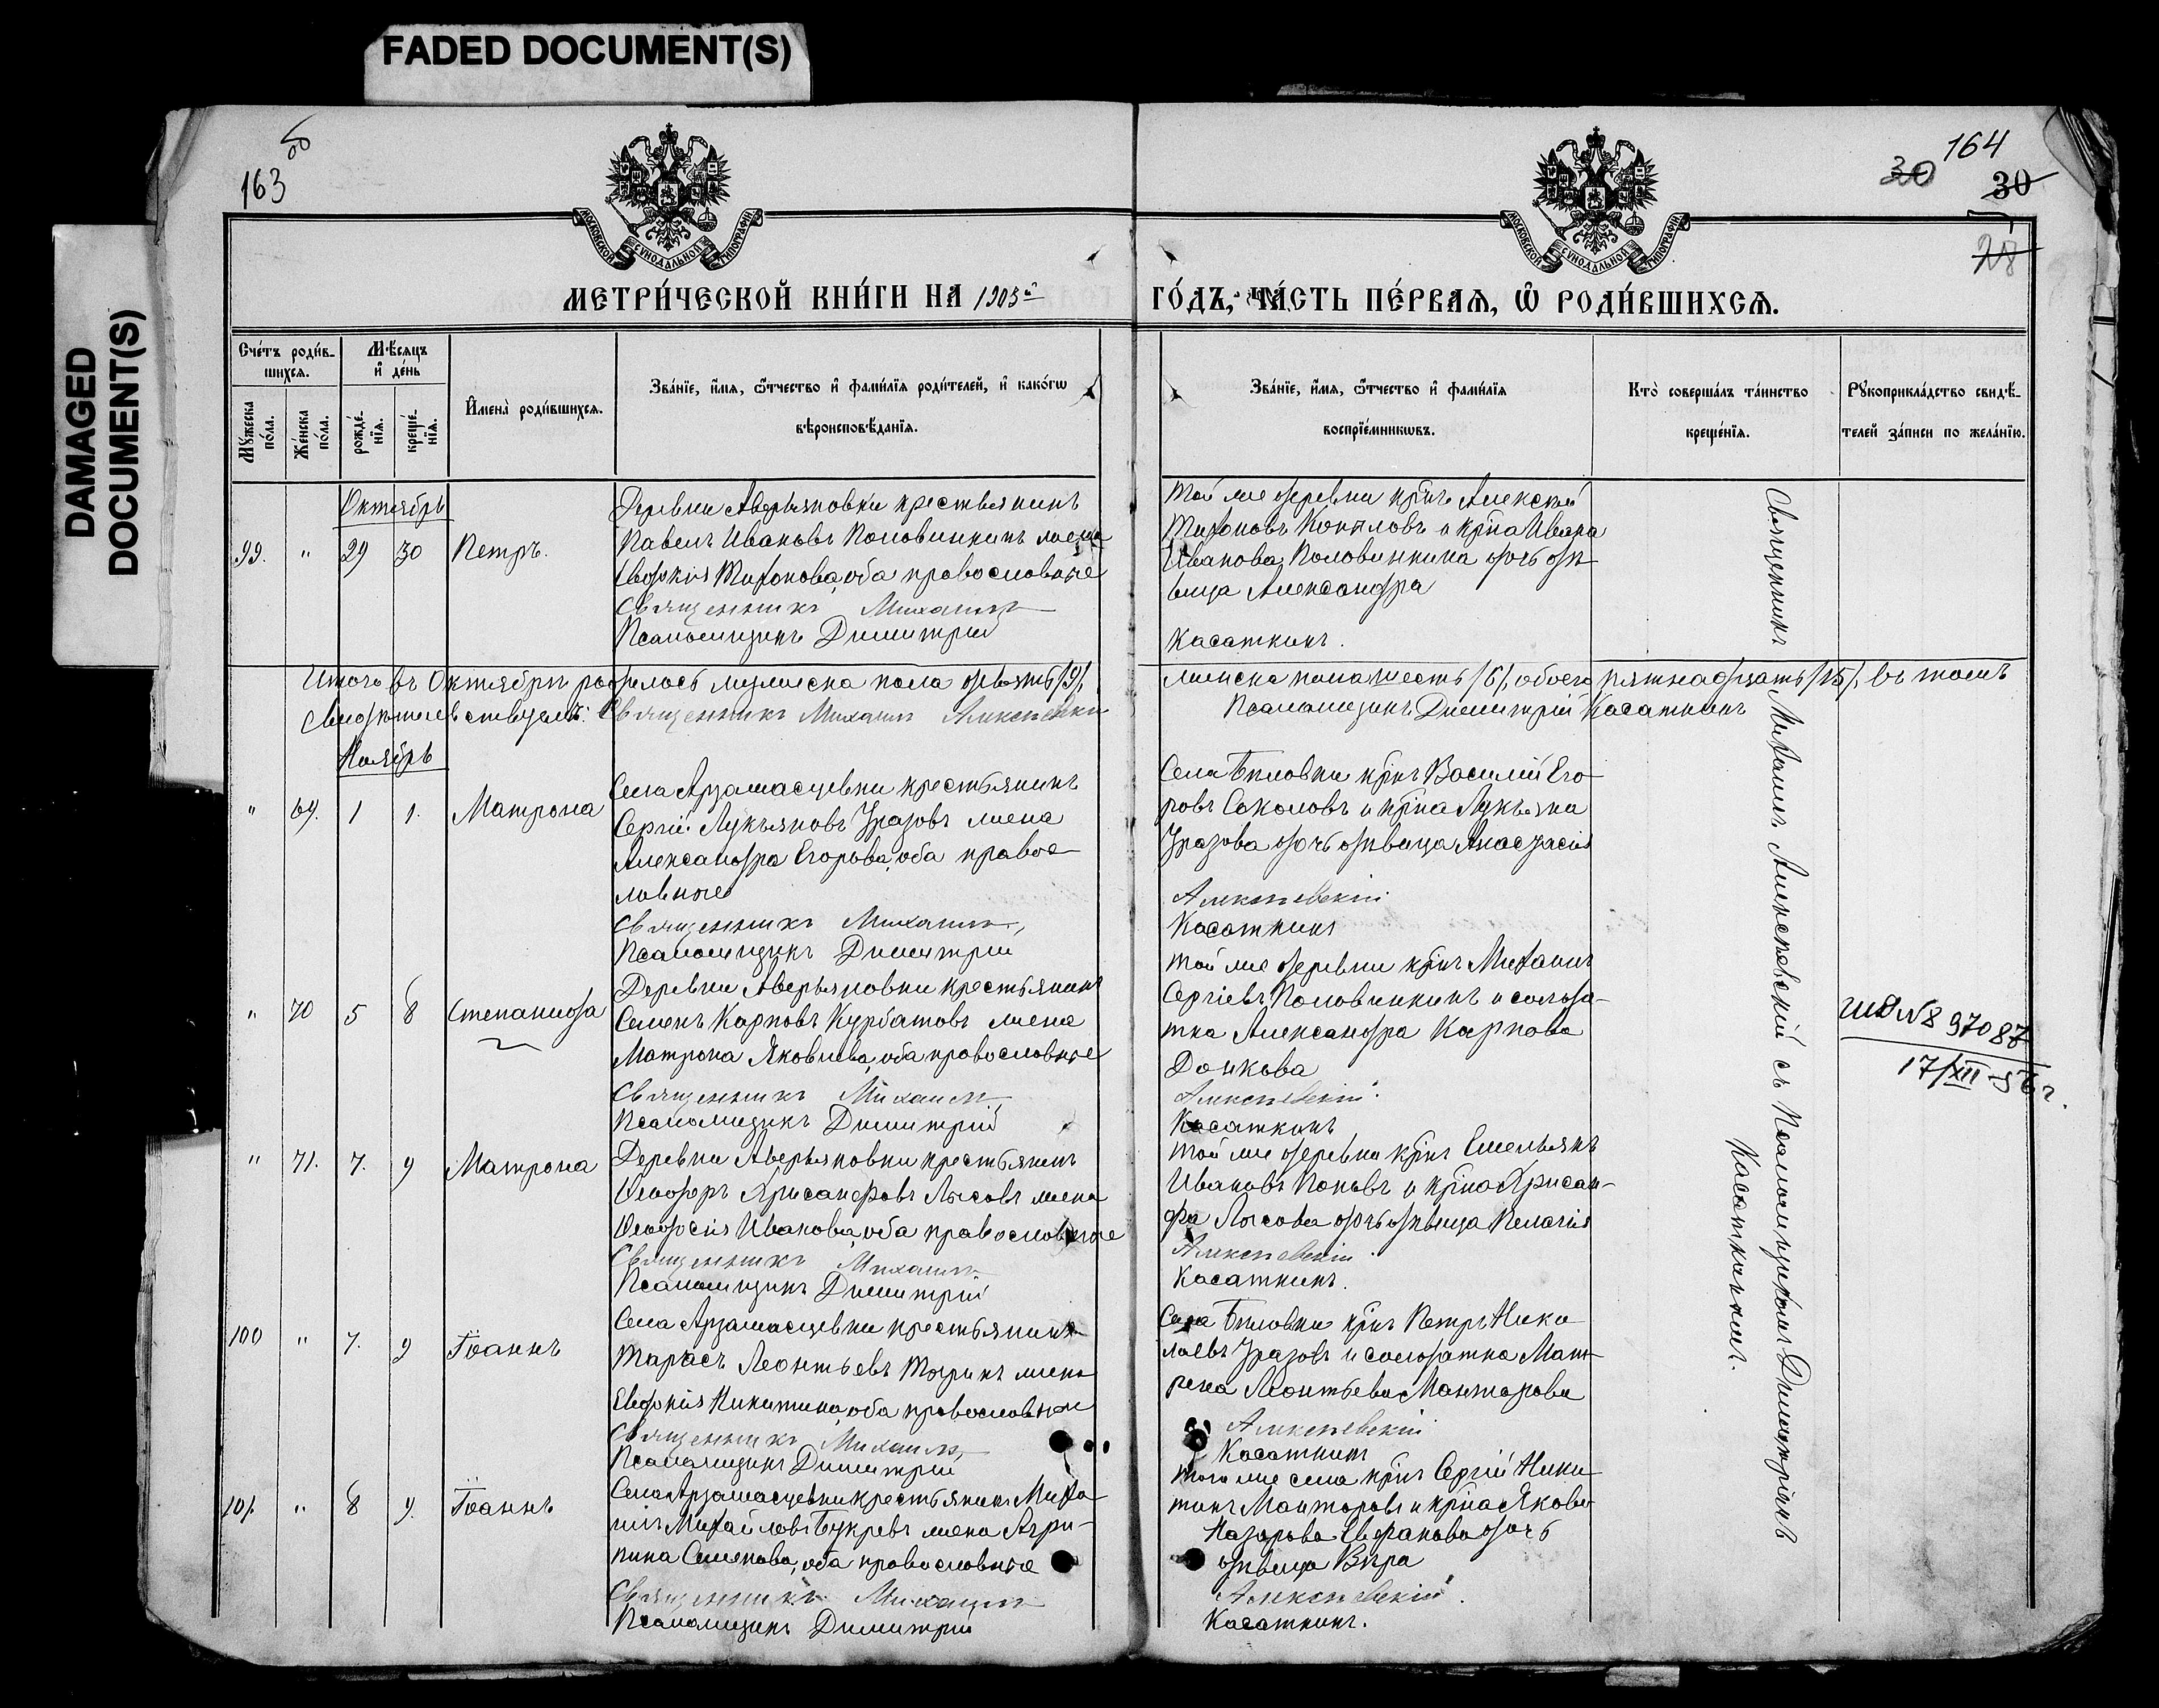 FADED DOCUMENT(S)
DAMAGED
DOCUMENT(S)
163 об
164
30
30
28
МОСКОВСКОЙ СУНОДАЛЬНОЙ ТИПОГРАФІИ
МОСКОВСКОЙ СУНОДАЛЬНОЙ ТИПОГРАФІИ
МЕТРИ́ЧЕСКОЙ КНИ́ГИ НА 1903й
ГО́ДЪ, ЧА́СТЬ ПЕ́РВАѦ, Ѡ РОДИ́ВШИХСѦ.
Сче́тъ роди́в-
шихсѧ.
Мѣ́сѧцъ
и҆ де́нь
Мꙋ́жеска
по́ла.
Же́нска
по́ла.
рожде́-
нїѧ.
креще́-
нїѧ.
И҆мена̀ роди́вшихсѧ.
Зва́нїе, и҆́мѧ, ѻ҆́тчество и҆ фами́лїѧ роди́телей, и҆ како́гѡ
вѣроисповѣ́данїѧ.
Зва́нїе, и҆́мѧ, ѻ҆́тчество и҆ фами́лїѧ
воспрїе́мникѡвъ.
Кто̀ соверша́лъ та́инство
креще́нїѧ.
Рꙋкоприкла́дство свидѣ́-
телей за́писи по жела́нїю.
Октябрь
99. " 29 30 Петръ.
Деревни Аверьяновки крестьянинъ
Павелъ Ивановъ Половинкинъ жена
Евдокія Тихонова, оба православные
Священникъ Михаилъ
Псаломщикъ Димитрій
Той же деревни кр҃нъ Алексѣй
Тихоновъ Копыловъ и кр҃на Ивана
Иванова Половинкина дочь дѣ-
вица Александра
Касаткинъ.
Итого въ Октябрѣ родилось мужеска пола девять /9/,
женска пола шесть /6/, обоего пятнадцать /15/, въ томъ
свидѣтельствуемъ: Священникъ Михаилъ Алексѣевскій
Псаломщикъ Димитрій Касаткинъ
Ноябрь
" 69. 1 1. Матрона
Села Арзамасцевки крестьянинъ
Сергій Лукьяновъ Уразовъ жена
Александра Егорова, оба правос-
лавные
Священникъ Михаилъ,
Псаломщикъ Димитрій
Села Бѣловки кр҃нъ Василій Его-
ровъ Соколовъ и кр҃на Лукьяна
Уразова дочь дѣвица Анастасія
Алексѣевскій
Касаткинъ
" 70 5 8 Степанида
Деревни Аверьяновки крестьянинъ
Семенъ Карповъ Курбатовъ жена
Матрона Яковлева, оба православные
Священникъ Михаилъ
Псаломщикъ Димитрій
Той же деревни кр҃нъ Михаилъ
Сергіевъ Половинкинъ и солда-
тка Александра Карпова
Донкова
Алексѣевскій.
Касаткинъ
" 71. 7. 9 Матрона
Деревни Аверьяновки крестьянинъ
Ѳеодоръ Хрисанфовъ Лысовъ жена
Ѳеодосія Иванова, оба православные
Священникъ Михаилъ
Псаломщикъ Димитрій
Той же деревни кр҃нъ Емельянъ
Ивановъ Поповъ и кр҃на Хрисан-
фа Лысова дочь дѣвица Пелагія
Алексѣевскій.
Касаткинъ.
100 " 7. 9 Іоаннъ
Села Арзамасцевки крестьянинъ
Тарасъ Леонтьевъ жена
Евдокія Никитина, оба православные
Священникъ Михаилъ
Псаломщикъ Димитрій
Села Бѣловки кр҃нъ Петръ Нико-
лаевъ Уразовъ и солдатка Мат-
рена Леонтьева Мантарова
Алексѣевскій
Касаткинъ
101. " 8 9. Іоаннъ
Села Арзамасцевки крестьянинъ Миха-
илъ Михайловъ жена Агри-
пина Семенова, оба православные
Священникъ Михаилъ
Псаломщикъ Димитрій
Того же села кр҃нъ Сергій Ники-
тинъ Манторовъ и кр҃на Якова
Назарова дочь
дѣвица Вѣра
Алексѣевскій.
Касаткинъ.
Священникъ Михаилъ Алексѣевскій съ Псаломщикомъ Димитріемъ
Касаткинымъ.
№ 97087
17/XII-56г.